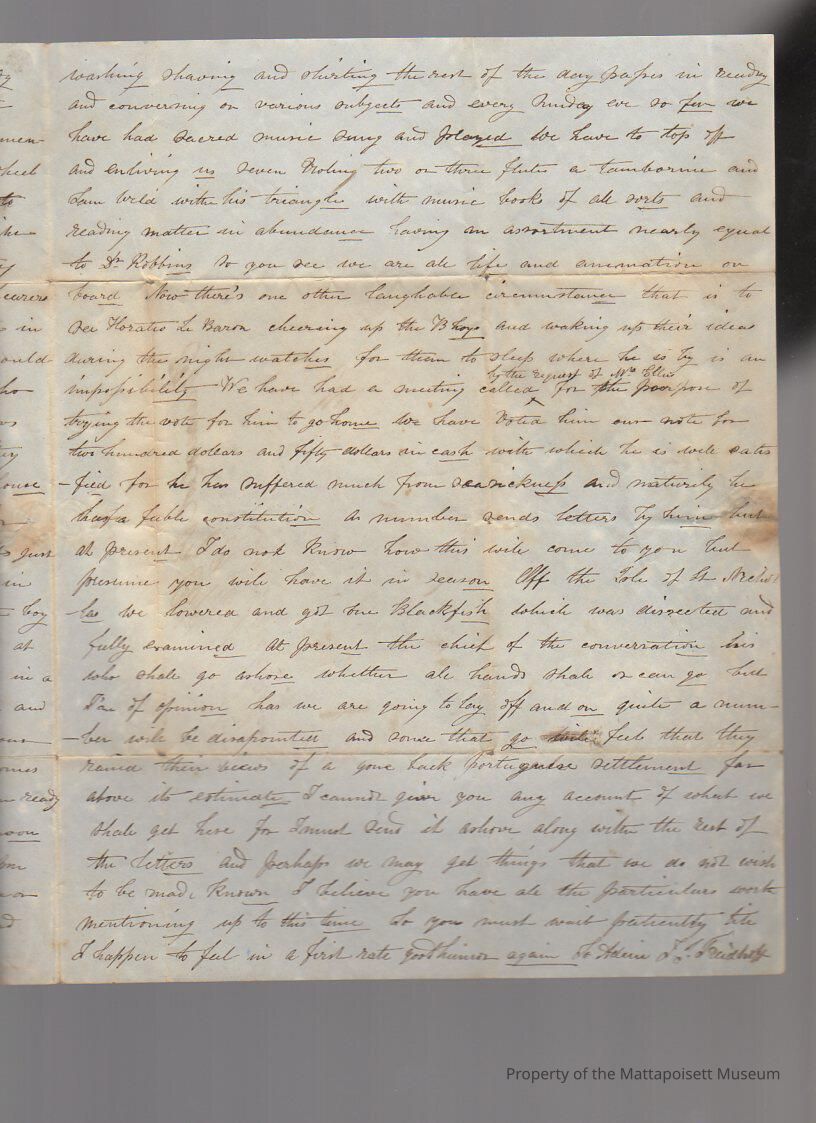 washing shaving and shirting the rest of the day passes in reading
and conversing on various subjects and every Sunday eve so far we
have had sacred music sung and played We have to top off
and enliving us seven two or three flutes a tamborine and
Sam with his triangle with music books of all sorts and
reading matter in abundance having an assortment nearly equal
to Dr Robbins So you see we are all life and animation on
board Now there's one other laughable circumstance that is to
see Horatio Le Baron cheering up the Bhoys and waking up their ideas
during the night watches for them to sleep where he is by is an
by the request of Mr Ellis
impossibility We have had a meeting called for the poorpose of
trying the vote for him to go home We have voted him our note for
two hundred dollars and fifty dollars in cash with which he is well satis
-fied for he has suffered much from seasickness and naturily he
has a feble constitution A number sends letters by him but
at present I do not know how this will come to you but
presume you will have it in season Off the Isle of St Nichol
-las we lowered and got one Blackfish which was dissected and
fully examined At present the chief of the conversation his
who shall go ashore whether all hands shall or can go but
I'm of opinion has we are going to lay off and on quite a num-
-ber will be disapointed and some that go feel that they
raised their views of a gone back Portuguese settlement far
above its estimate I cannot give you any account of what we
shall get here for I must send it ashore along with the rest of
the letters and perhaps we may get things that we do not wish
to be made known I believe you have all the particulars worth
mentioning up to this time So you must wait patiently till
I happen to feel in a first rate good humor again So Adieu
men-
to
in
ould
ho
ouse
just
in
boy
at
in a
and
ready
Property of the Mattapoisett Museum